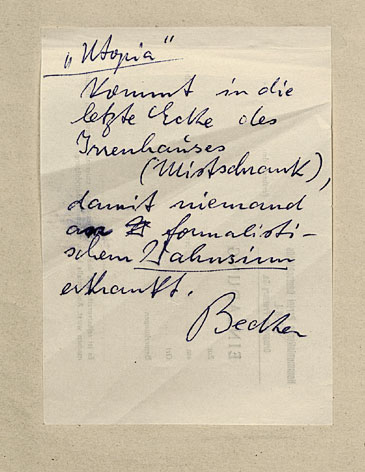 „Utopia“
Kommt in die
letzte Ecke des
Irrenhauses
(Mistschrank),
damit niemand
an formalisti-
schem Wahnsinn
erkrankt.
Becker